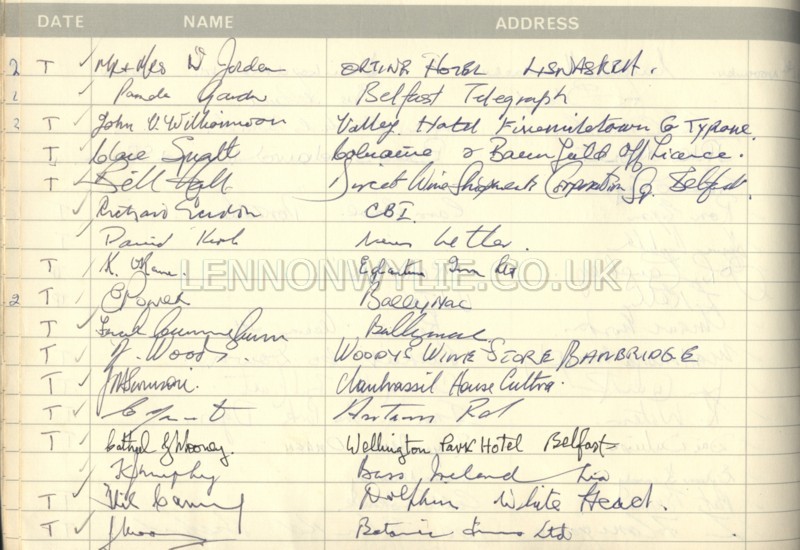 DATE NAME ADDRESS
2 T ✓ Mr & Mrs W Jordan ORTINE HOTEL LISNASKEA.
2 ✓ Pamela Belfast Telegraph
2 T ✓ John V. Williamson Valley Hotel Fivemiletown Co Tyrone.
T ✓ Clare Coleraine & Off Licence.
T ✓ Bill Hall Direct Wine Shipments Corporation Sq. Belfast.
✓ Richard CBI.
✓ David News Letter.
T ✓ K. O'Kane. Eglantine Inn Ltd
LENNONWYLIE.CO.UK
2 T ✓ Ballymac
T ✓ Cunningham Ballymac
T ✓ Woods. WOODYS WINE STORE BANBRIDGE
T ✓ Clanbrassil House Cultra.
T ✓ Antrim Rd
T ✓ Cathyl & Mooney. Wellington Park Hotel Belfast
✓ K Murphy Bass Ireland Ltd
T ✓ Dolphin White Head.
T ✓ Botanic Inns Ltd